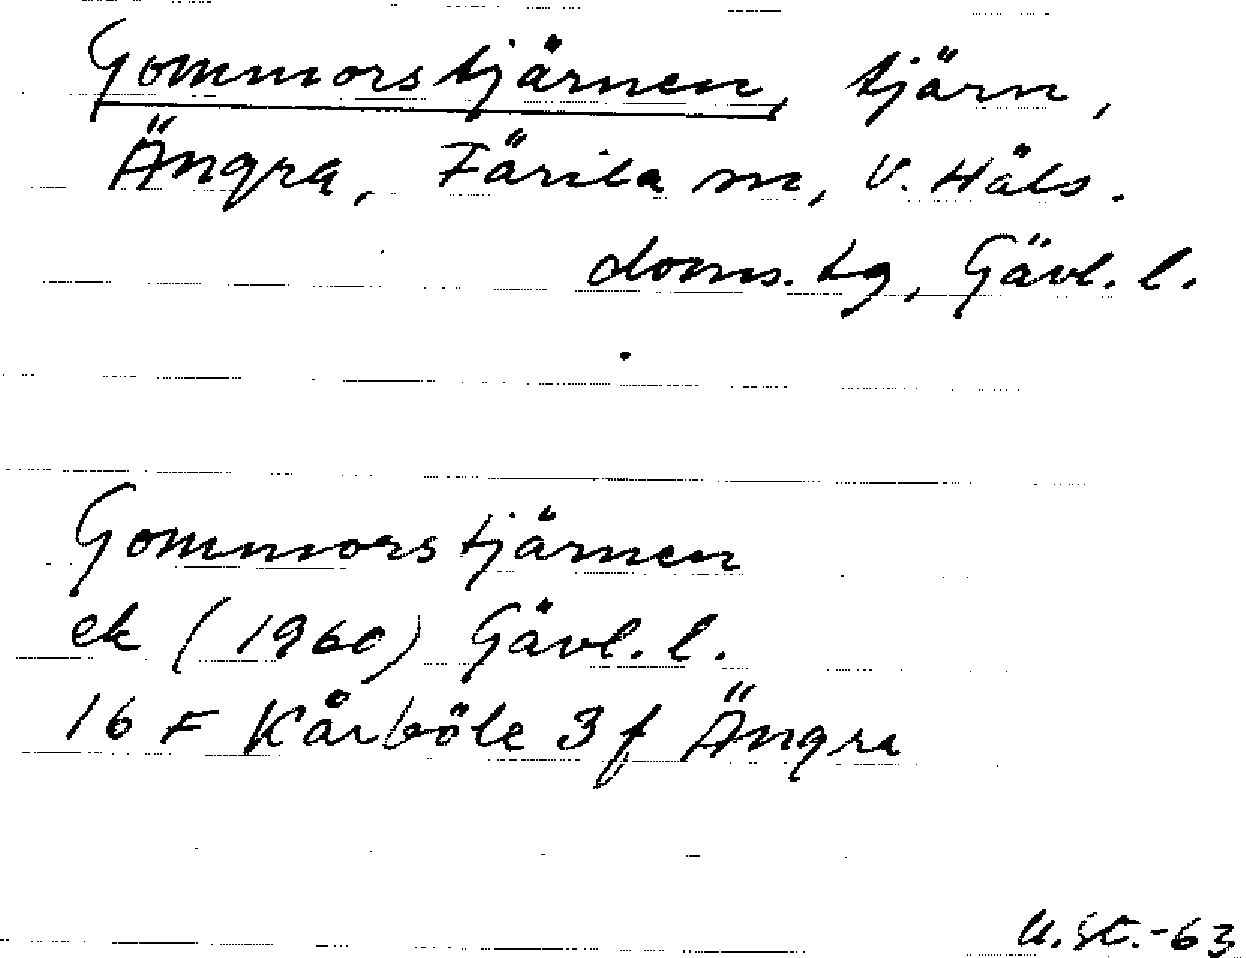 Gommorstjärnen, tjärn,
Ängra, Färila sn, V. Häls.
doms. tg, Gävl. l.
Gommorstjärnen
ek (1960) Gävl. l.
16 F Kårböle 3 f Ängra
U. St. -63